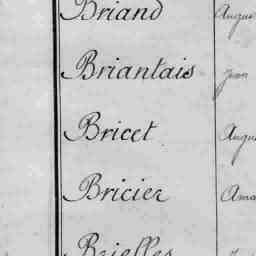 Briand Augus
Briantais Jean
Bricet Augu
Bricier Ama
Brielles